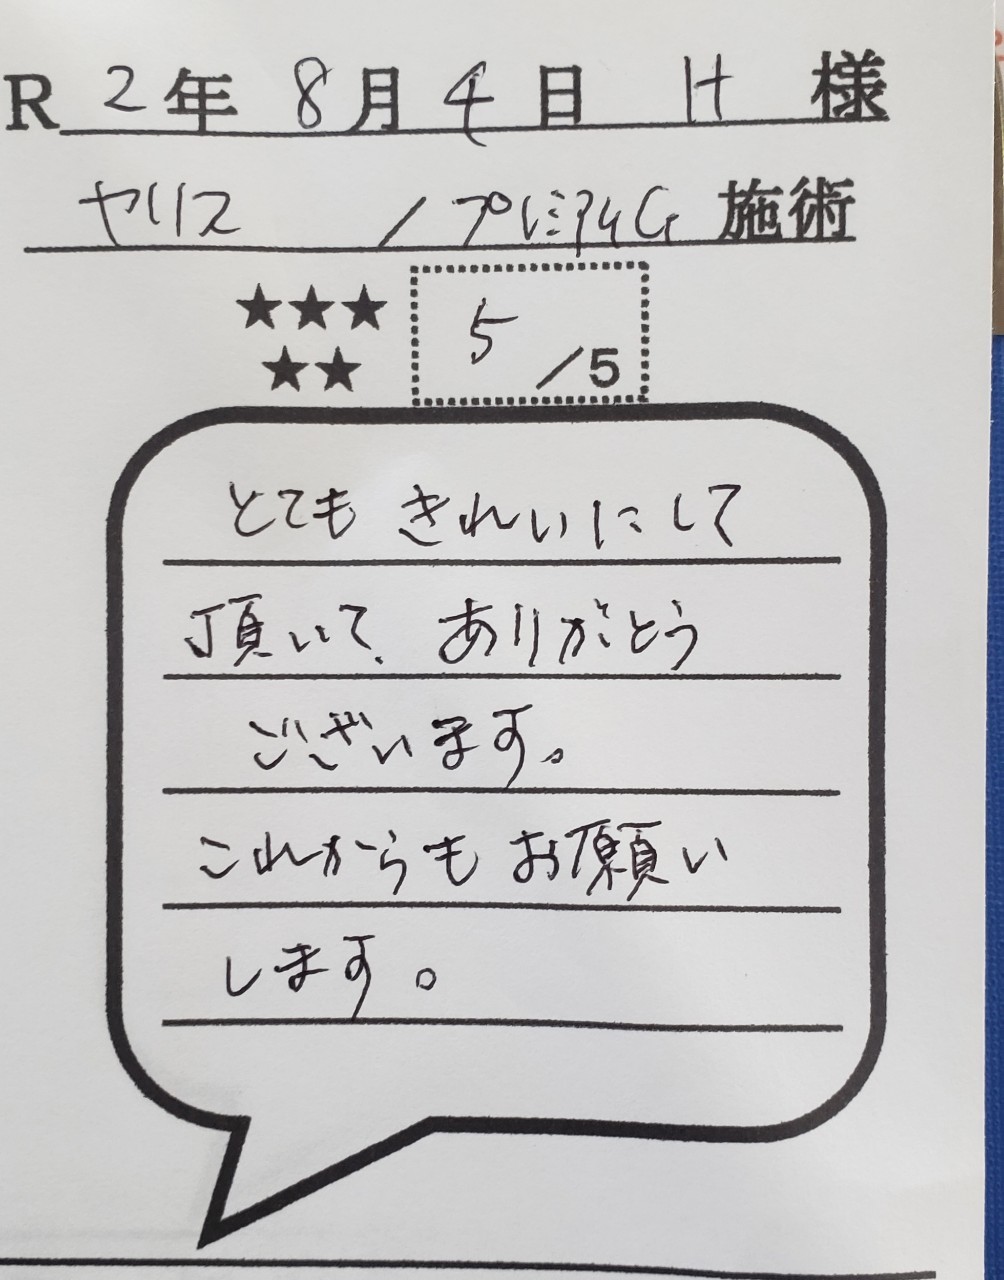 R 2年 8月 4日 H 様
ヤリス / プレミアムG 施術
★★★
★★
5/5
とても きれいにして
頂いて、ありがとう
ございます。
これからも お願い
します。